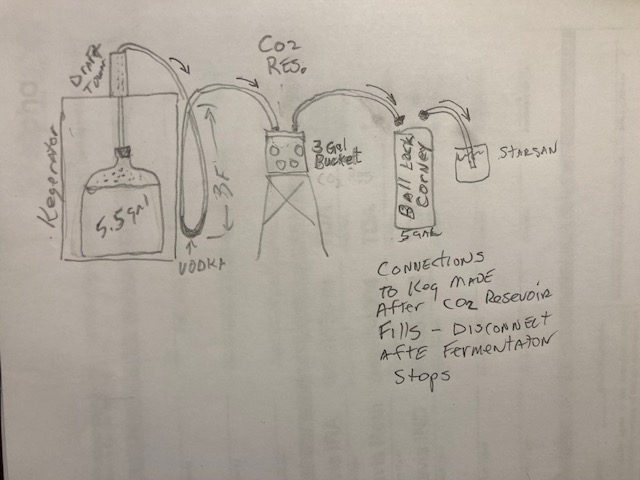 DRAFT
Tower
CO2
RES.
Kegerator
5.5gal
3F
VODKA
3 Gal
Bucket
Ball Lock
Corney
5 GAL
STARSAN
CONNECTIONS
TO Keg MADE
AFTER CO2 Reservoir
Fills - DISCONNECT
AFTE FERMENTATON
Stops